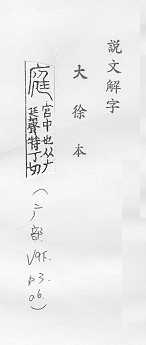 説文解字
大徐本
庭
宮中也从广
廷聲特丁切
(广部
V9F.
p3.
a6.)